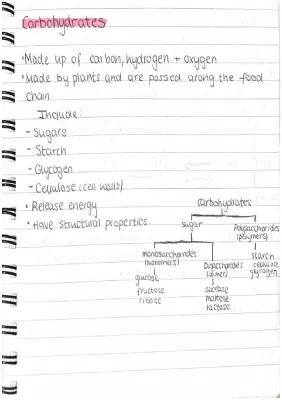 Carbohydrates
•Made up of carbon, hydrogen + oxygen
•Made by plants and are passed along the food
chain
Include:
- Sugars
- Starch
- Glycogen
- Cellulose (cell walls)
• Release energy
• Have structural properties
carbohydrates
sugar
Polysaccharides
(polymers)
starch
cellulose
glycogen
monosaccharides
(monomers)
glucose
fructose
ribose
Disaccharides
(dimer)
sucrose
maltose
lactose